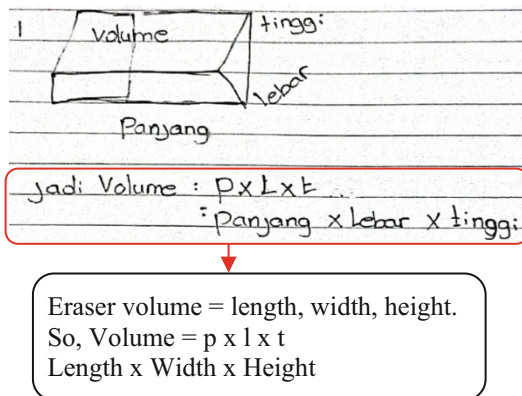 1
volume
tinggi
lebar
Panjang
Jadi Volume : P x L x t
: Panjang x Lebar x tinggi
Eraser volume = length, width, height.
So, Volume = p x l x t
Length x Width x Height